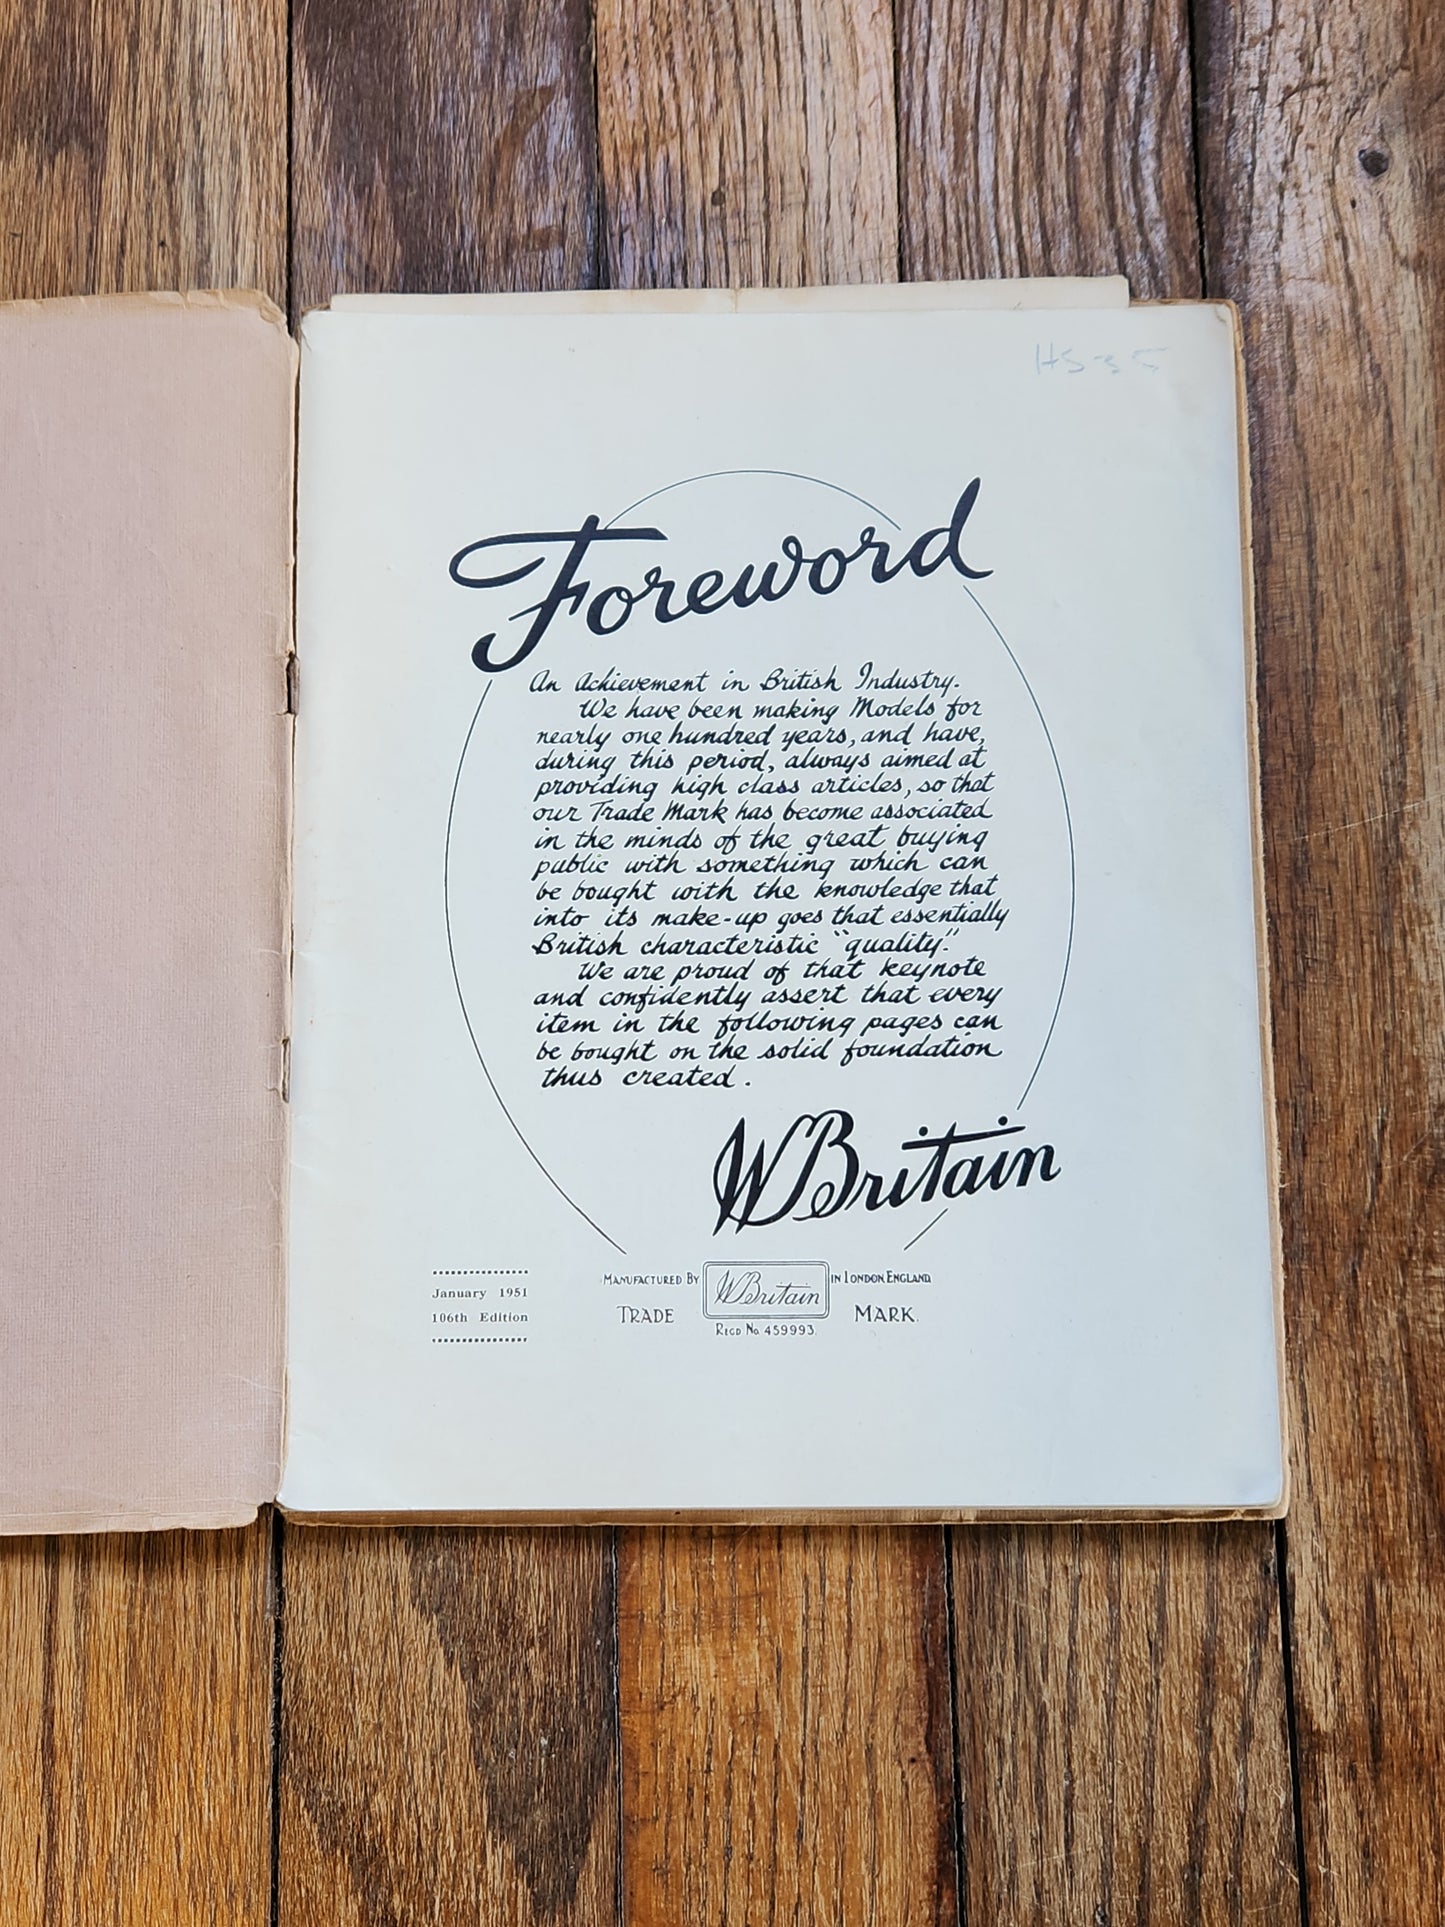 Foreword
An Achievement in British Industry.
We have been making Models for
nearly one hundred years, and have,
during this period, always aimed at
providing high class articles, so that
our Trade Mark has become associated
in the minds of the great buying
public with something which can
be bought with the knowledge that
into its make-up goes that essentially
British characteristic "quality."
We are proud of that keynote
and confidently assert that every
item in the following pages can
be bought on the solid foundation
thus created.
W Britain
January 1951
106th Edition
MANUFACTURED BY W Britain IN LONDON, ENGLAND
TRADE MARK.
REGD No. 459993.